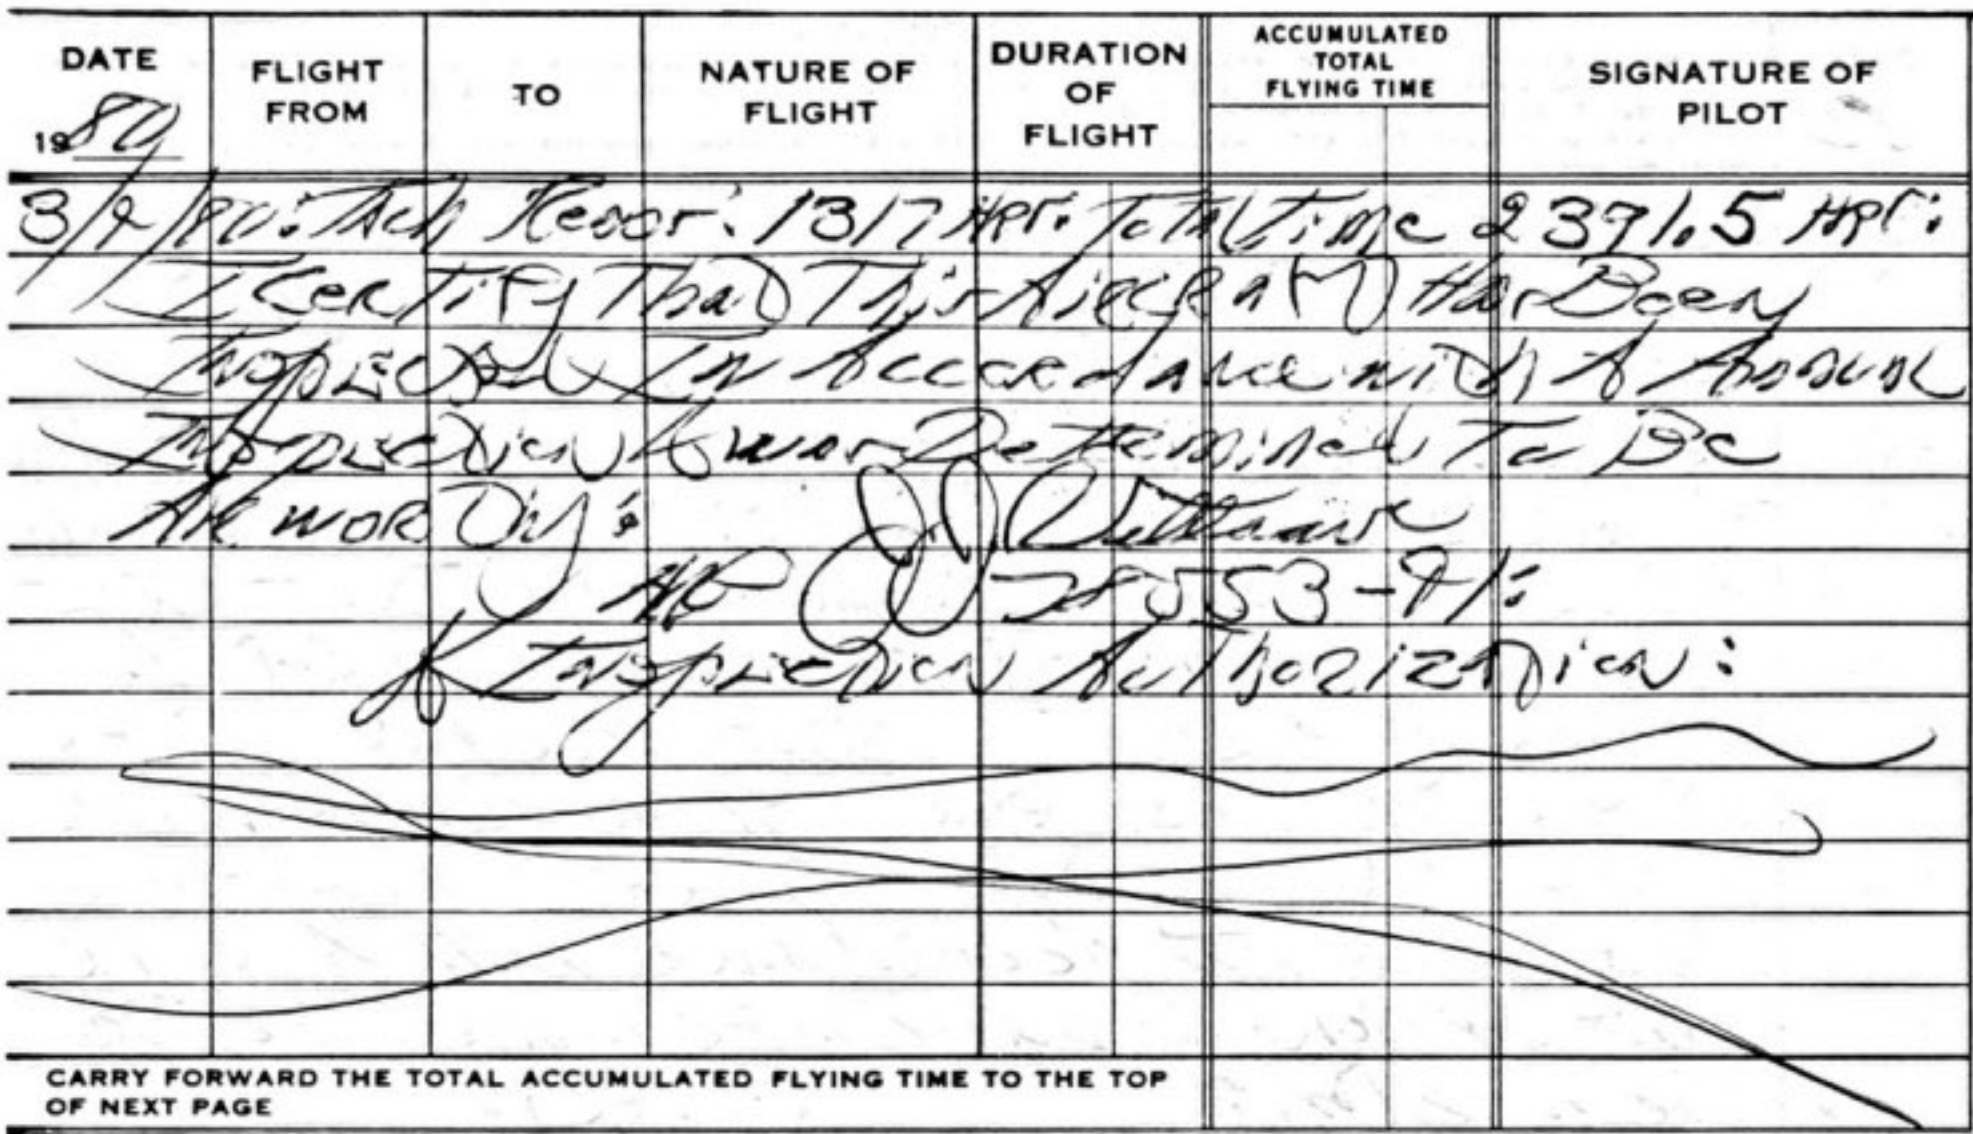 DATE
1980
FLIGHT FROM
TO
NATURE OF FLIGHT
DURATION OF FLIGHT
ACCUMULATED TOTAL FLYING TIME
SIGNATURE OF PILOT
Tach 1317 Hrs. Total Time 2371.5 Hrs:
I Certify That This Aircraft Has Been
Inspected In Accordance with A Annual
Inspection & was Determined To Be
Airworthy:
AP 553-91:
& Inspection Authorization:
CARRY FORWARD THE TOTAL ACCUMULATED FLYING TIME TO THE TOP
OF NEXT PAGE